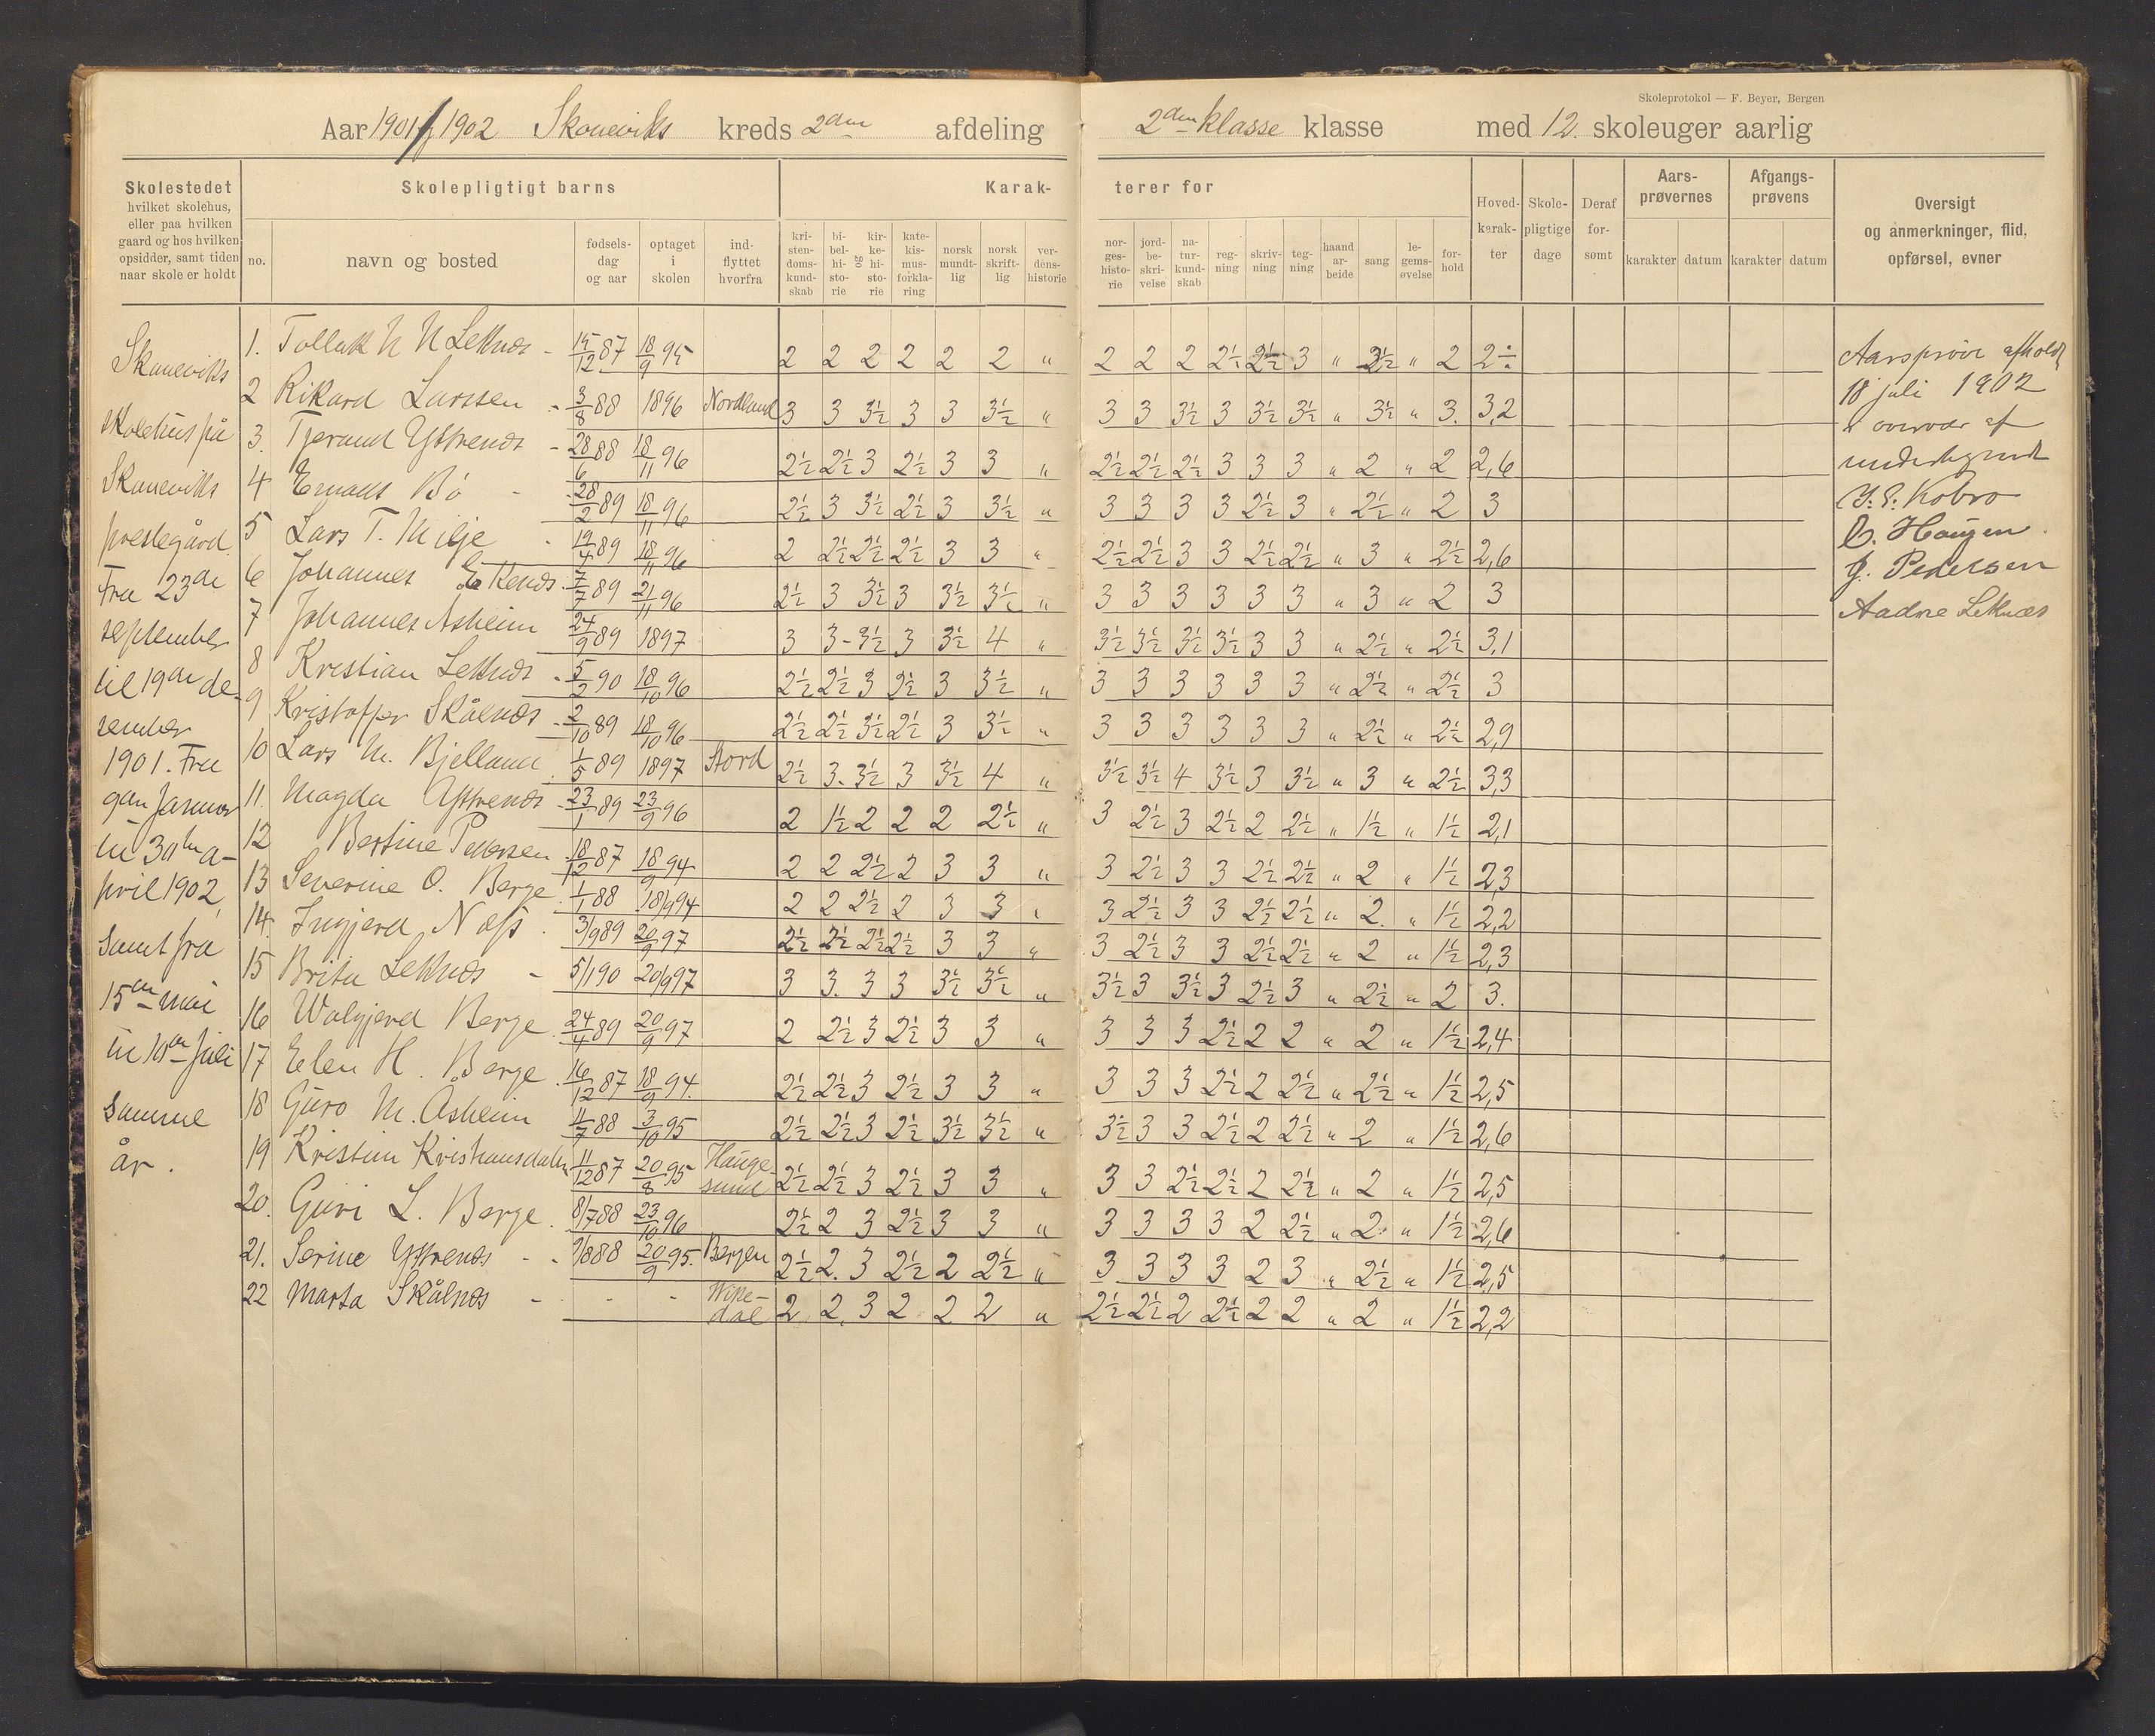 Skoleprotokol — F. Beyer, Bergen
Aar 1901/1902 Skoneviks kreds 2den afdeling 2den klasse klasse med 12. skoleuger aarlig
Skolestedet
hvilket skolehus,
eller paa hvilken
gaard og hos hvilken
opsidder, samt tiden
naar skole er holdt
Skolepligtigt barns
no.
navn og bosted
fødsels-
dag
og aar
optaget
i
skolen
ind-
flyttet
hvorfra
Karak-
terer for
kri-
sten-
doms-
kund-
skab
bi-
bel-
hi-
sto-
rie
og
kir-
ke-
hi-
sto-
rie
kate-
kis-
mus-
forkla-
ring
norsk
mundt-
lig
norsk
skrift-
lig
ver-
dens-
historie
nor-
ges-
histo-
rie
jord-
be-
skri-
velse
na-
tur-
kund-
skab
reg-
ning
skriv-
ning
teg-
ning
haand
ar-
beide
sang
le-
gems-
øvelse
for-
hold
Hoved-
karak-
ter
Skole-
pligtige
dage
Deraf
for-
sømt
Aars-
prøvernes
karakter datum
Afgangs-
prøvens
karakter datum
Oversigt
og anmerkninger, flid,
opførsel, evner
Skoneviks
skolehus på
Skoneviks
prestegård.
Fra 23de
september
til 19de de-
sember
1901. Fra
9de januar
til 30te a-
pril 1902,
samt fra
15de mai
til 10de juli
samme
år.
1. Tollak N N Leknes - 15/12 87 18/9 95 2 2 2 2 2 2 " 2 2 2 2½ 2½ 3 " 2½ " 2 2÷
2 Rikard Larssen - 3/8 88 1896 Nordland 3 3 3½ 3 3 3½ " 3 3 3½ 3 3½ 3½ " 3½ " 3. 3,2
3. Tjerand Ystrenes - 28/6 88 18/11 96 2½ 2½ 3 2½ 3 3 " 2½ 2½ 2½ 3 3 3 " 2 " 2 2,6
4 Bö - 28/2 89 18/11 96 2½ 3 3½ 2½ 3 3½ " 3 3 3 3 2½ 3 " 2½ " 2 3
5 Lars T. Milje - 19/4 89 18/11 96 2 2½ 2½ 2½ 3 3 " 2½ 2½ 3 3 2½ 2½ " 3 " 2½ 2,6
6 Johannes Ekenes - 7/7 89 21/11 96 2½ 3 3½ 3 3½ 3½ " 3 3 3 3 3 3 " 3 " 2 3
7 Johannes Asheim 24/9 89 1897 3 3- 3½ 3 3½ 4 " 3½ 3½ 3½ 3½ 3 3 " 2½ " 2½ 3,1
8 Kristian Leknes - 5/2 90 18/10 96 2½ 2½ 3 2½ 3 3½ " 3 3 3 3 3 3 " 2½ " 2½ 3
9 Kristoffer Skålnes - 2/10 89 18/10 96 2½ 2½ 3½ 2½ 3 3½ " 3 3 3 3 3 3 " 2½ " 2½ 2,9
10 Lars M. Bjelland. 1/5 89 1897 Stord 2½ 3. 3½ 3 3½ 4 " 3½ 3½ 4 3½ 3 3½ " 3 " 2½ 3,3
11. Magda Ystrenes - 23/1 89 23/9 96 2 1½ 2 2 2 2½ " 3 2½ 3 2½ 2 2½ " 1½ " 1½ 2,1
12 Bertine Pedersen 18/12 87 18/9 94 2 2 2½ 2 3 3 " 3 2½ 3 3 2½ 2½ " 2 " 1½ 2,3
13 Severine O. Berge. 1/1 88 18/9 94 2 2 2½ 2 3 3 " 3 2½ 3 3 2½ 2½ " 2. " 1½ 2,2
14. Ingjerd Næss. 3/9 89 20/9 97 2½ 2½ 2½ 2½ 3 3 " 3 2½ 3 3 2½ 2½ " 2 " 1½ 2,3
15 Brita Leknes - 5/1 90 20/9 97 3 3. 3 3 3½ 3½ " 3½ 3 3½ 3 2½ 3 " 2½ " 2 3.
16 Walgjerd Berge. 24/4 89 20/9 97 2 2½ 3 2½ 3 3 " 3 3 3 2½ 2 2 " 2 " 1½ 2,4
17 Elen H. Berge. 16/12 87 18/9 94. 2½ 2½ 3 2½ 3 3 " 3 3 3 2½ 2 2½ " 2½ " 1½ 2,5
18 Guro M. Åsheim 11/7 88 3/10 95 2½ 2½ 3 2½ 3½ 3½ " 3½ 3 3 2½ 2 2½ " 2 " 1½ 2,6
19 Kristine Kristiansdatter 11/12 87 20/8 95 Hauge-
sund 2½ 2½ 3 2½ 3 3 " 3 3 2½ 2½ 2 2½ " 2 " 1½ 2,5
20. Guri L. Berge. 8/7 88 23/10 96 2½ 2 3 2½ 3 3 " 3 3 3 3 2 2½ " 2 " 1½ 2,6
21. Serine Ystrenes - - 9/8 88 20/9 95. Bergen 2½ 2. 3 2½ 2 2½ " 3 3 3 3 2 3 " 2½ " 1½ 2,5
22 Marta Skålnes - - - Wike-
dal 2 2. 3 2 2 2 " 2½ 2½ 2 2½ 2 2 " 2 " 1½ 2,2
Aarsprøve afholdt
18 juli 1902
i overvær af
undertegnede
J. E. Kobro
O. Haugen.
J. Pedersen
Aadne Leknes